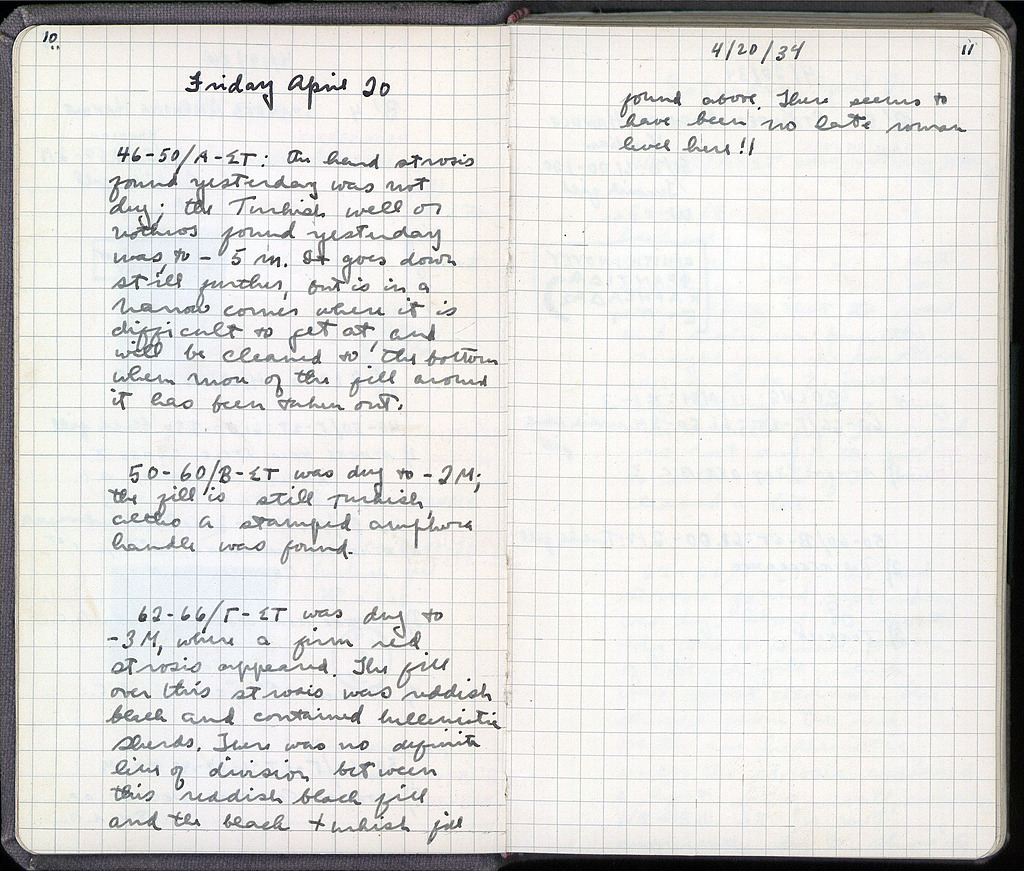 10
Friday April 20
46-50/Α-ΣΤ: the hard strosis
found yesterday was not
dug; the Turkish well or
vothros found yesterday
was to - 5 m. It goes down
still further, but is in a
narrow corner where it is
difficult to get at, and
will be cleaned to the bottom
when more of the fill around
it has been taken out.
50-60/Β-ΣΤ was dug to -2M;
the fill is still Turkish,
altho a stamped amphora
handle was found.
62-66/Γ-ΣΤ was dug to
-3M, where a firm red
strosis appeared. The fill
over this strosis was reddish
black and contained hellenistic
sherds. There was no definite
line of division between
this reddish black fill
and the black turkish fill
4/20/34
11
found above. There seems to
have been no late roman
level here!!